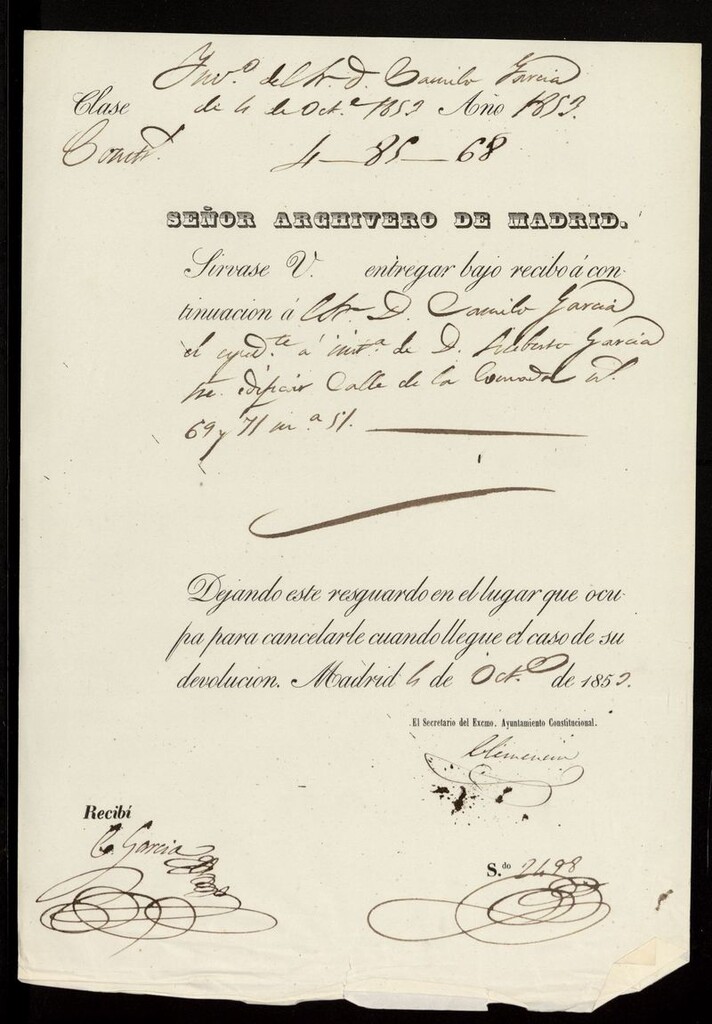 de Dr. D. Camilo Garcia
Clase de 4 de Oct.e 1853 Año 1853.
4 — 85 — 68
SEÑOR ARCHIVERO DE MADRID.
Sirvase V. entregar bajo recibo á con-
tinuacion á D. Camilo Garcia
el de D. Garcia
Calle de la
69 y 71 m.a 51.
Dejando este resguardo en el lugar que ocu-
pa para cancelarle cuando llegue el caso de su
devolucion. Madrid 4 de Oct.e de 1853.
El Secretario del Excmo. Ayuntamiento Constitucional.
Clemencin
Recibí
C. Garcia
S.do 2498